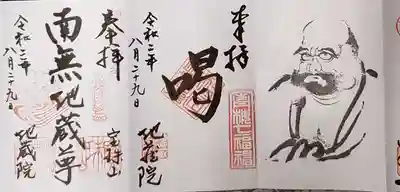 奉拝
宝珠山
南無地蔵尊
地蔵院
令和二年
八月二十九日
奉拝
喝
地蔵院
令和二年
八月二十九日